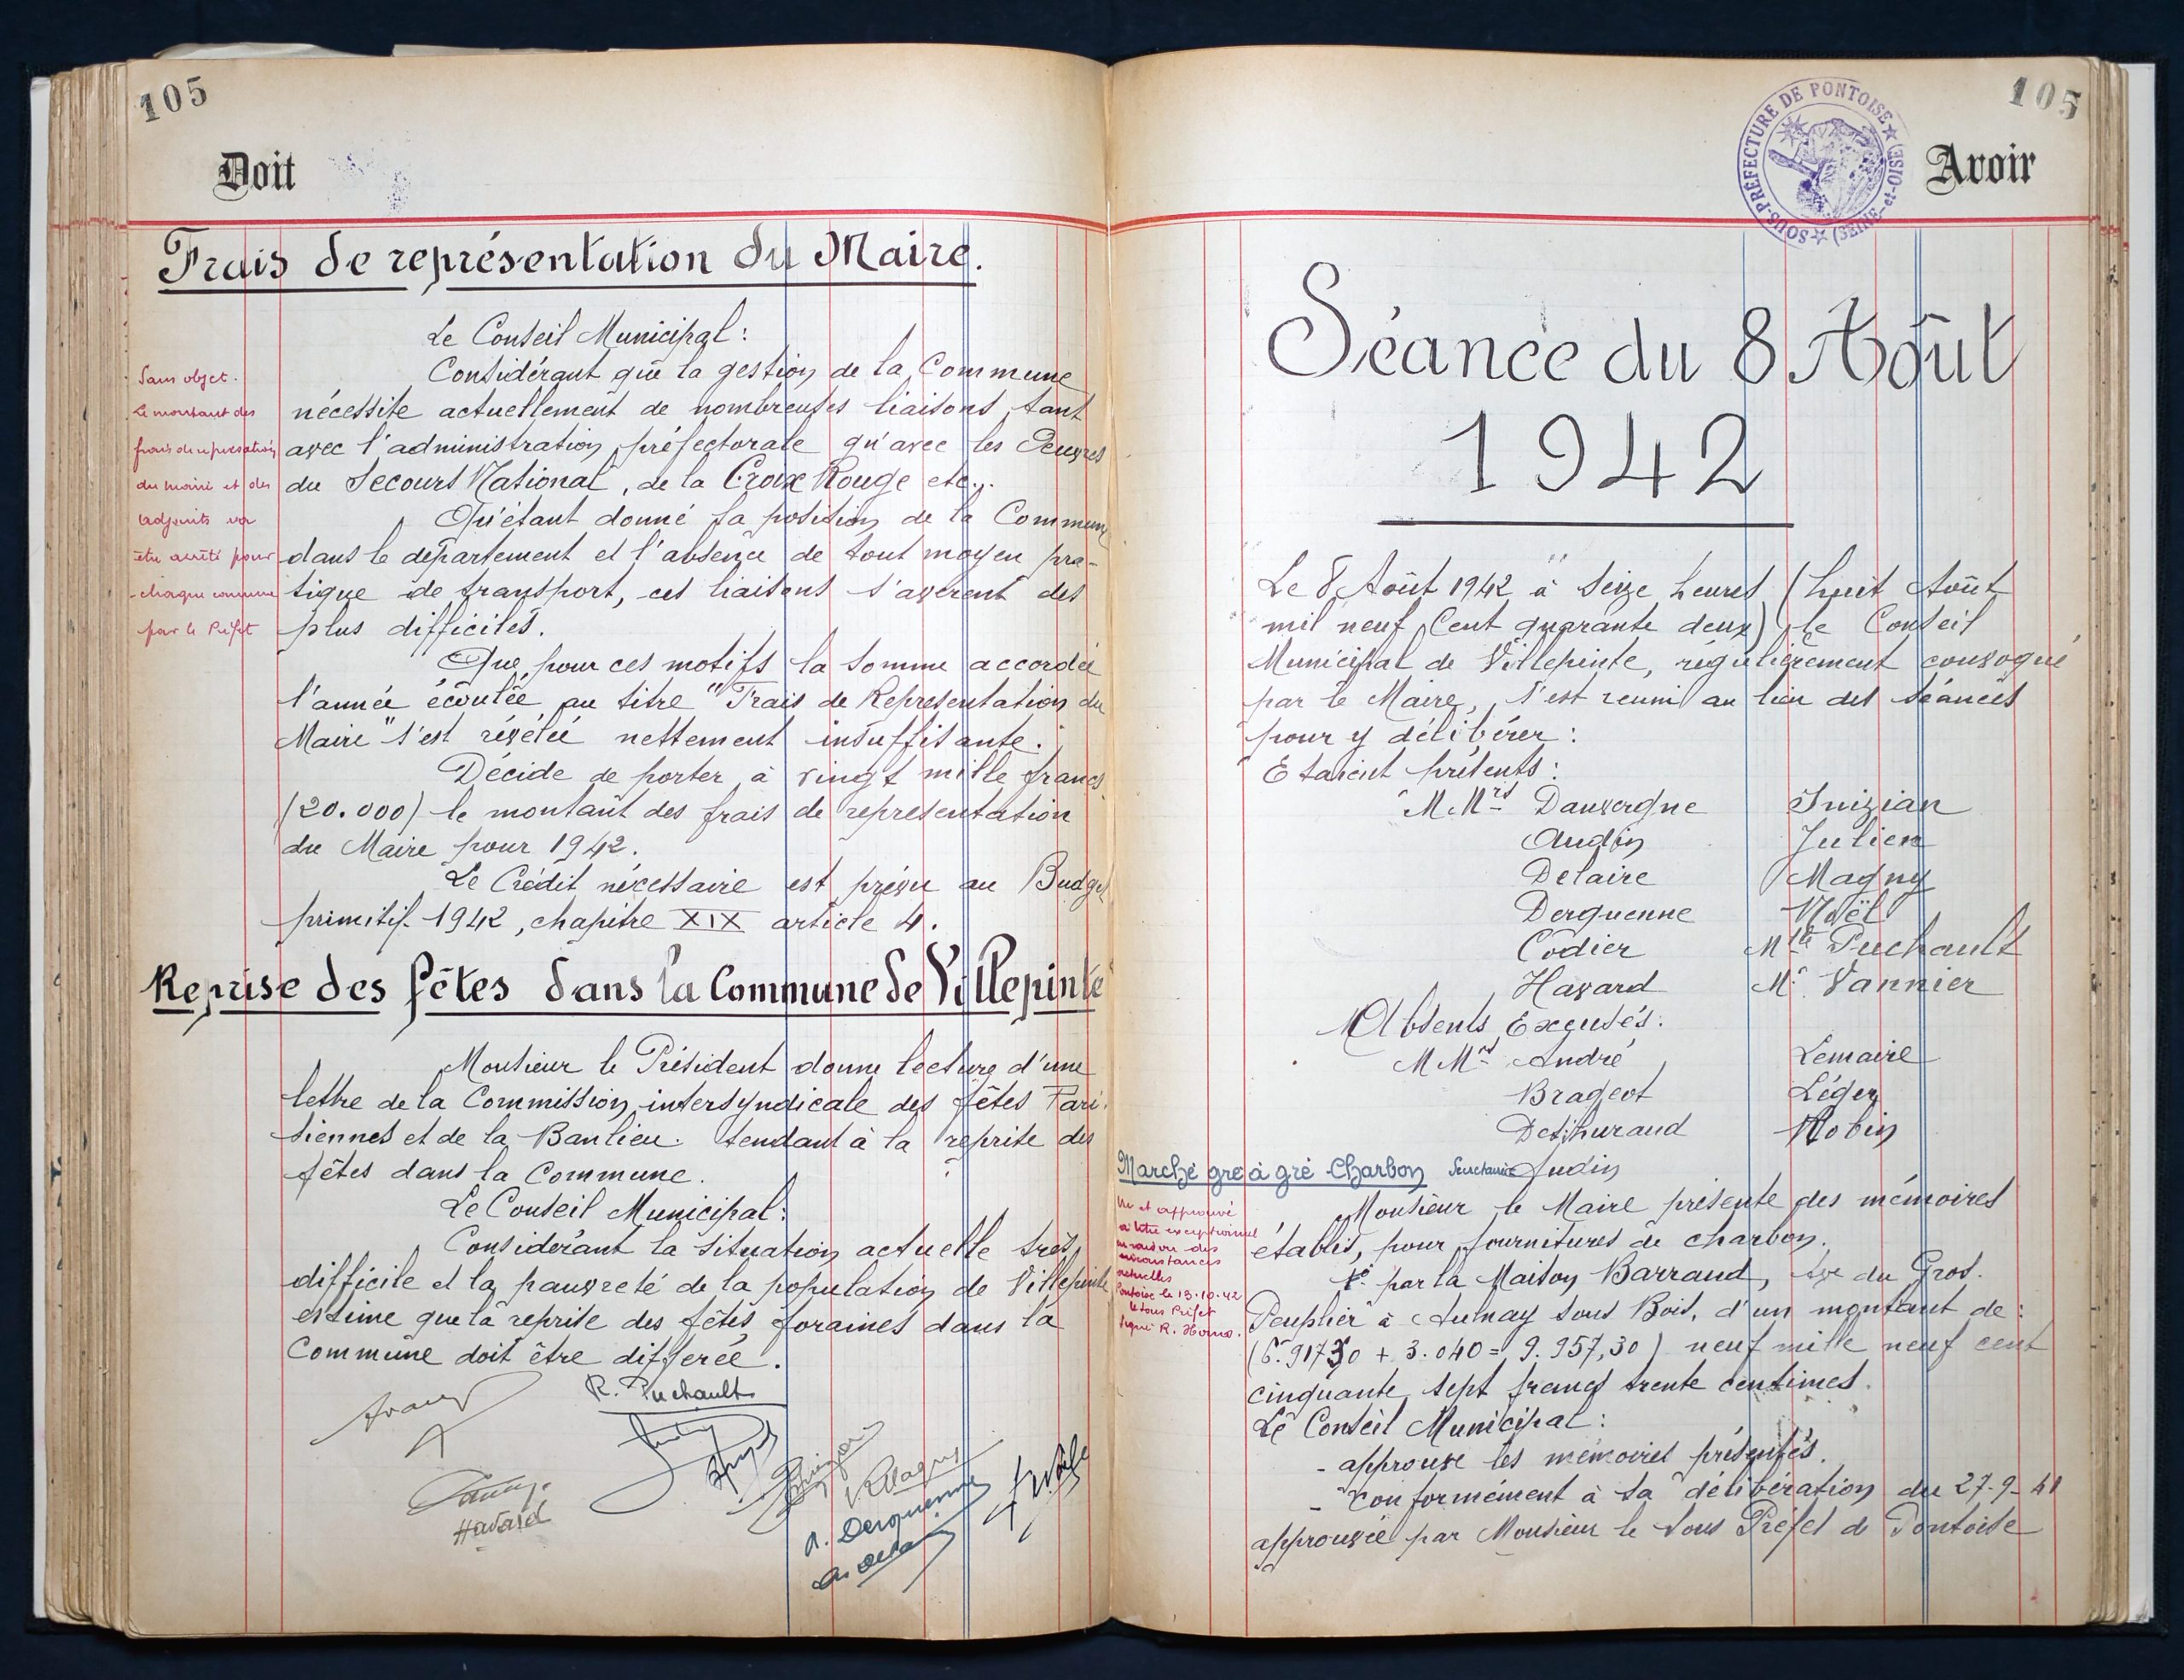 105
Doit
Frais de représentation du Maire.
Le Conseil Municipal:
Considérant que la gestion de la Commune
nécessite actuellement de nombreuses liaisons, tant
avec l'administration préfectorale qu'avec les Oeuvres
du Secours National, de la Croix Rouge etc..
Qu'étant donné la position de la Commune
dans le département et l'absence de tout moyen pra-
tique de transport, ces liaisons s'avèrent des
plus difficiles.
Que, pour ces motifs la somme accordée
l'année écoulée au titre "Frais de Représentation du
Maire" s'est révélée nettement insuffisante.
Décide de porter à vingt mille francs
(20.000) le montant des frais de représentation
du Maire pour 1942.
Le Crédit nécessaire est prévu au Budget
primitif 1942, chapitre XIX article 4.
Sans objet.
Le montant des
frais de représentation
du maire et des
adjoints va
être arrêté pour
chaque commune
par le Préfet
Reprise des fêtes dans la Commune de Villepinte
Monsieur le Président donne lecture d'une
lettre de la Commission intersyndicale des fêtes Pari-
siennes et de la Banlieu. tendant à la reprise des
fêtes dans la Commune.
Le Conseil Municipal:
Considérant la situation actuelle très
difficile et la pauvreté de la population de Villepinte
estime que la reprise des fêtes foraines dans la
Commune doit être différée.
R. Puchault
Havard
Magny
A. Derquenne
105
Avoir
SOUS-PRÉFECTURE DE PONTOISE
(SEINE-et-OISE)
Séance du 8 Août
1942
Le 8 Août 1942 à seize heures (huit Août
mil neuf Cent quarante deux) le Conseil
Municipal de Villepinte, régulièrement convoqué
par le Maire, s'est reuni au lieu des séances
pour y délibérer:
Etaient présents:
M Mrs Dauvergne Inizian
Audin Julien
Delaire Magny
Derquenne Noël
Codier Mlle Puchault
Havard Mr Vannier
Absents Excusés:
M Mrs André Lemaire
Brageot Léger
Deshuraud Robin
Marché gré à gré Charbon Secrétaire Audin
Vu et approuvé
à titre exceptionnel
en raison des
circonstances
actuelles
Pontoise le 13.10.42
le Sous Préfet
signé R.
Monsieur le Maire présente des mémoires
établis, pour fournitures de charbon.
1º par la Maison Barraud, Ave du Gros.
Peuplier à Aulnay sous Bois, d'un montant de:
(6.917,30 + 3.040 = 9.957,30) neuf mille neuf cent
cinquante sept francs trente centimes.
Le Conseil Municipal:
- approuve les mémoires présentés.
- Conformément à sa délibération du 27-9-41
approuvée par Monsieur le Sous Préfet de Pontoise